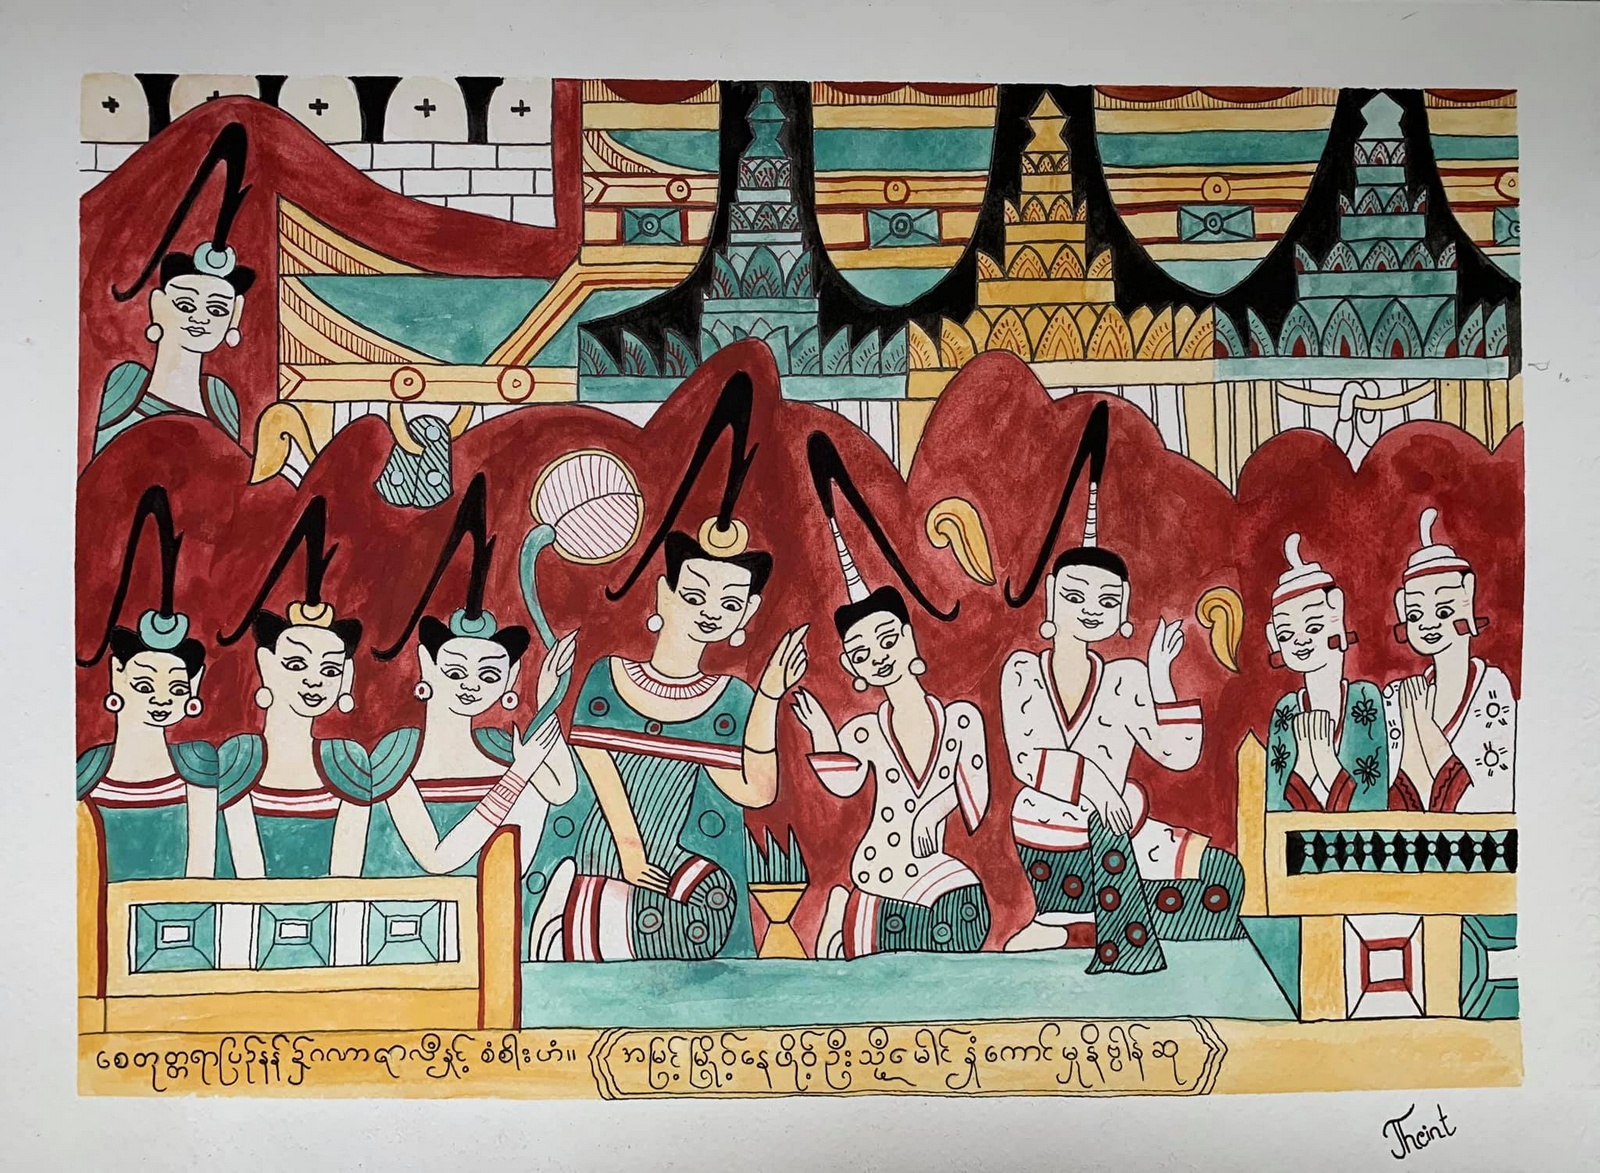 စေတုတ္တရာပြဉ်နန်၌ဂဏာရာလီနှင့် စံစါးဟံ။
အမြင့်မြို့ဝ့်နေဖို့ဝ့်ဦးသို့မောင်နှံကောင်မှုနိဗ္ဗါန်ဆု
Theint